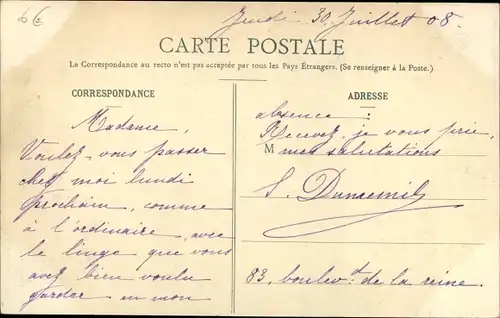 6 €
Jeudi 30 Juillet 08.
CARTE POSTALE
La Correspondance au recto n'est pas acceptée par tous les Pays Étrangers. (Se renseigner à la Poste.)
CORRESPONDANCE
Madame,
Voulez-vous passer
chez moi lundi
prochain, comme
à l'ordinaire, avec
le linge que vous
avez bien voulu
garder en mon
ADRESSE
absence :
Recevez, je vous prie,
M mes salutations
S.
83, boulevd de la reine.